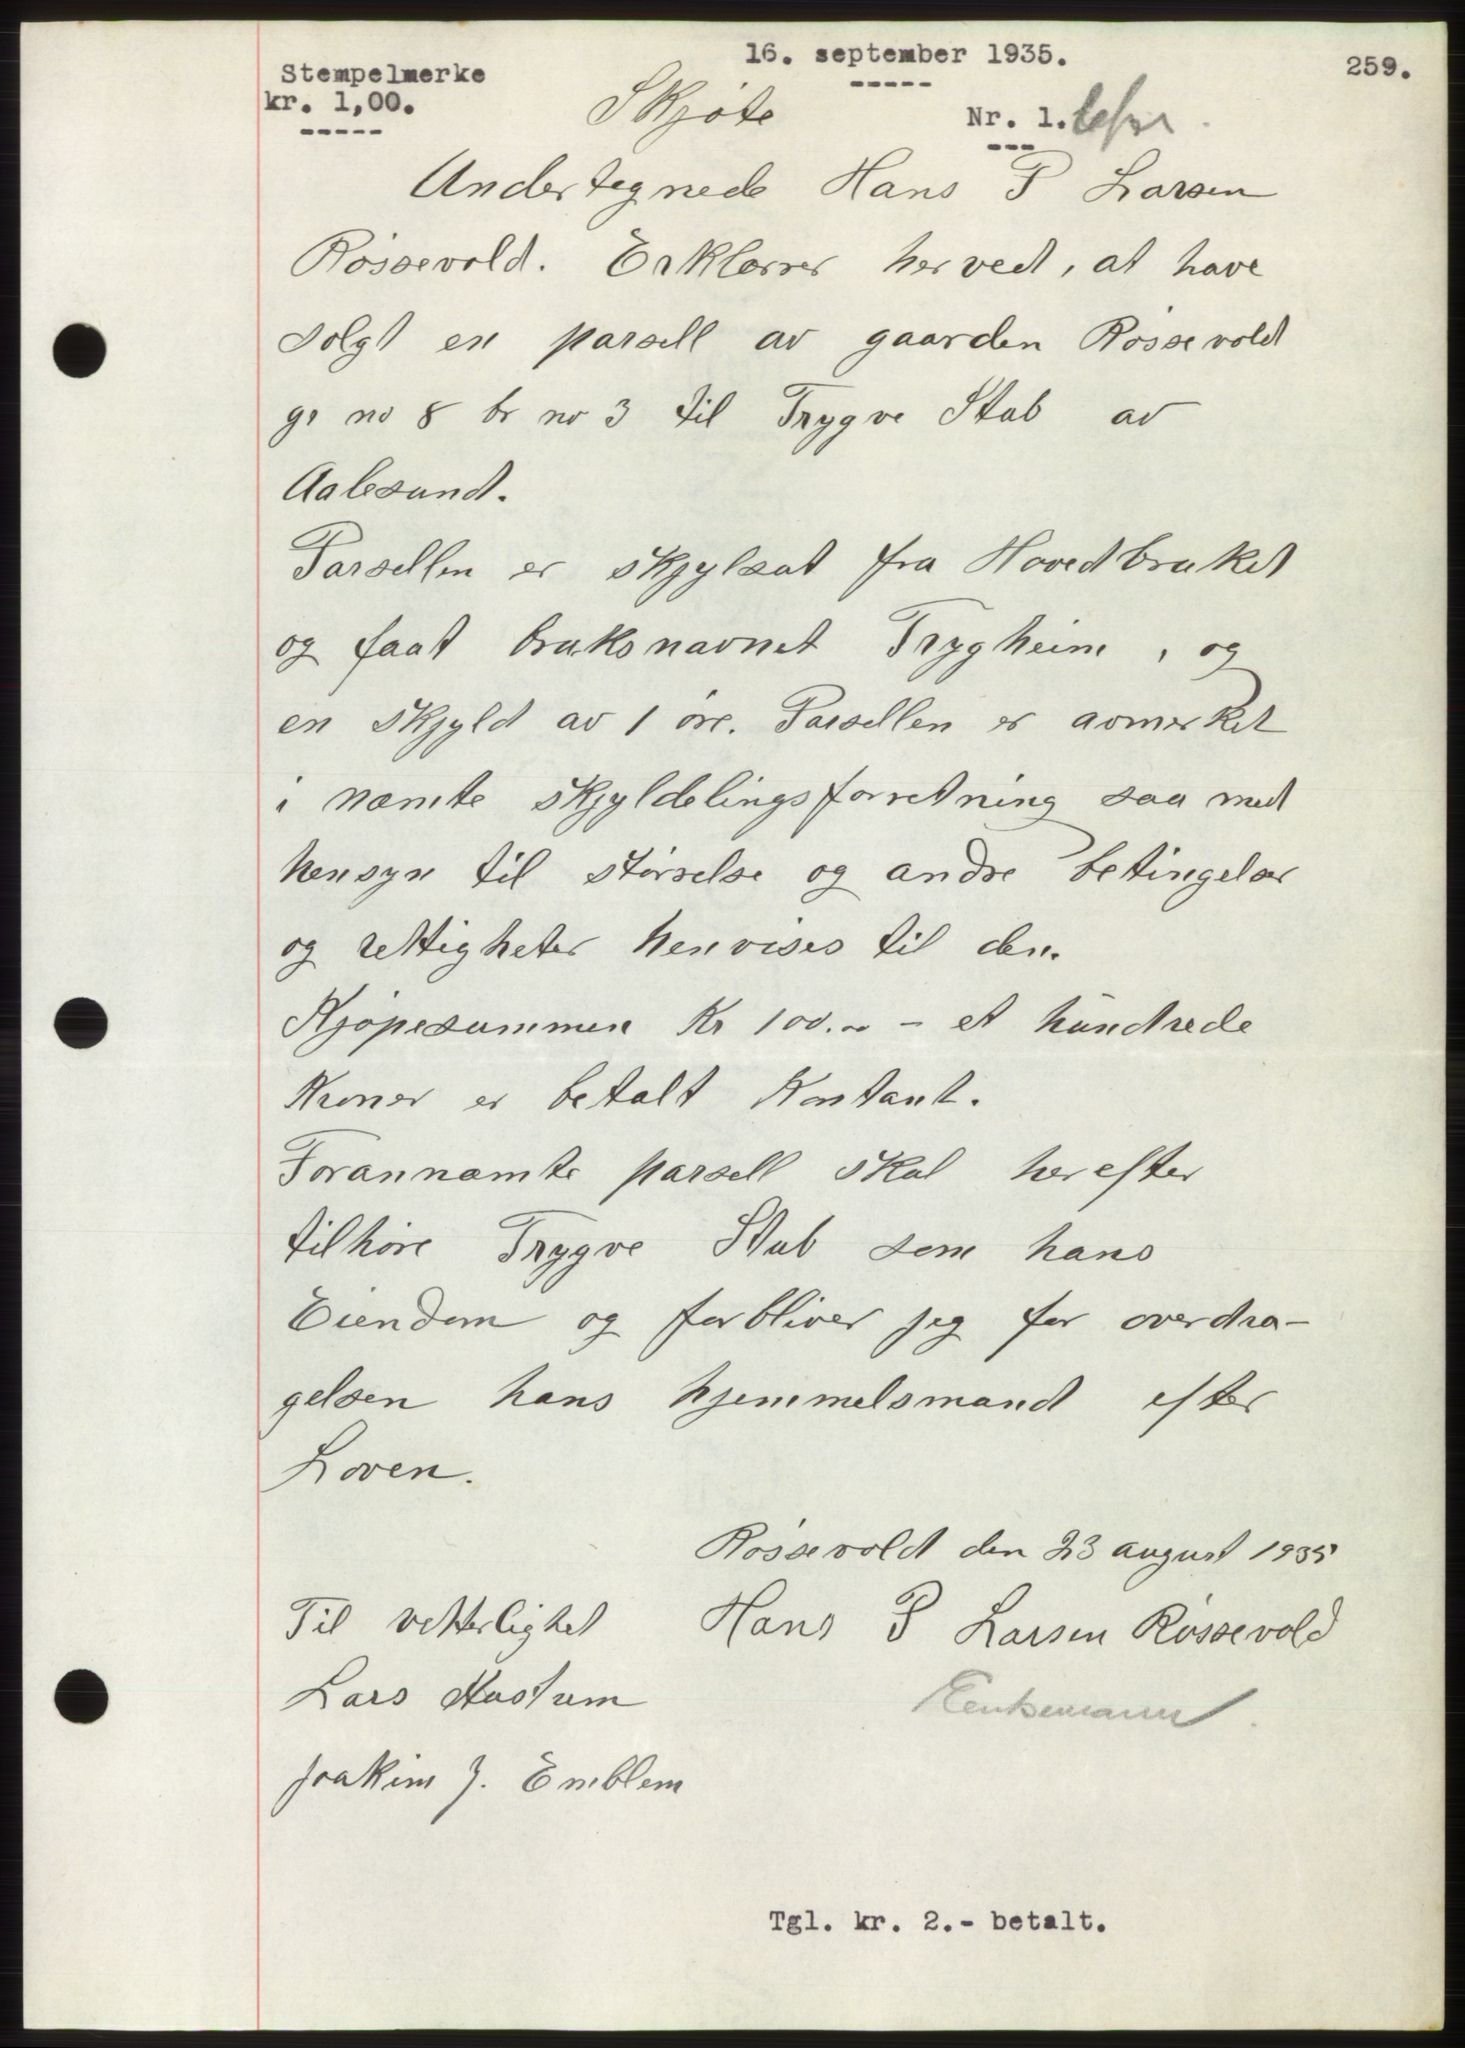 16. september 1935.
259.
Stempelmerke
kr. 1,00.
Skjøte
Nr. 1.
Undertegnede Hans P Larsen
Røssevold. Erklærer herved, at have
solgt en parsell av gaarden Røssevold
gr no 8 br no 3 til Trygve Stub av
Aalesund.
Parsellen er skjylsat fra Hovedbruket
og faat bruksnavnet Trygheim, og
en skjyld av 1 øre. Parsellen er avmerket
i næmte skjyldelingsforretning saa med
hensyn til størrelse og andre betingelser
og rettigheter henvises til den.
Kjøpesummen Kr 100.00 – et hundrede
Kroner er betalt Kontant.
Forannæmte parsell skal herefter
tilhøre Trygve Stub som hans
Eiendom og forbliver jeg for overdra-
gelsen hans hjemmelsmand efter
Loven.
Røssevold den 23 august 1935
Til vitterlighet
Hans P Larsen Røssevold
Lars
Joakim J. Emblem
Tgl. kr. 2.- betalt.